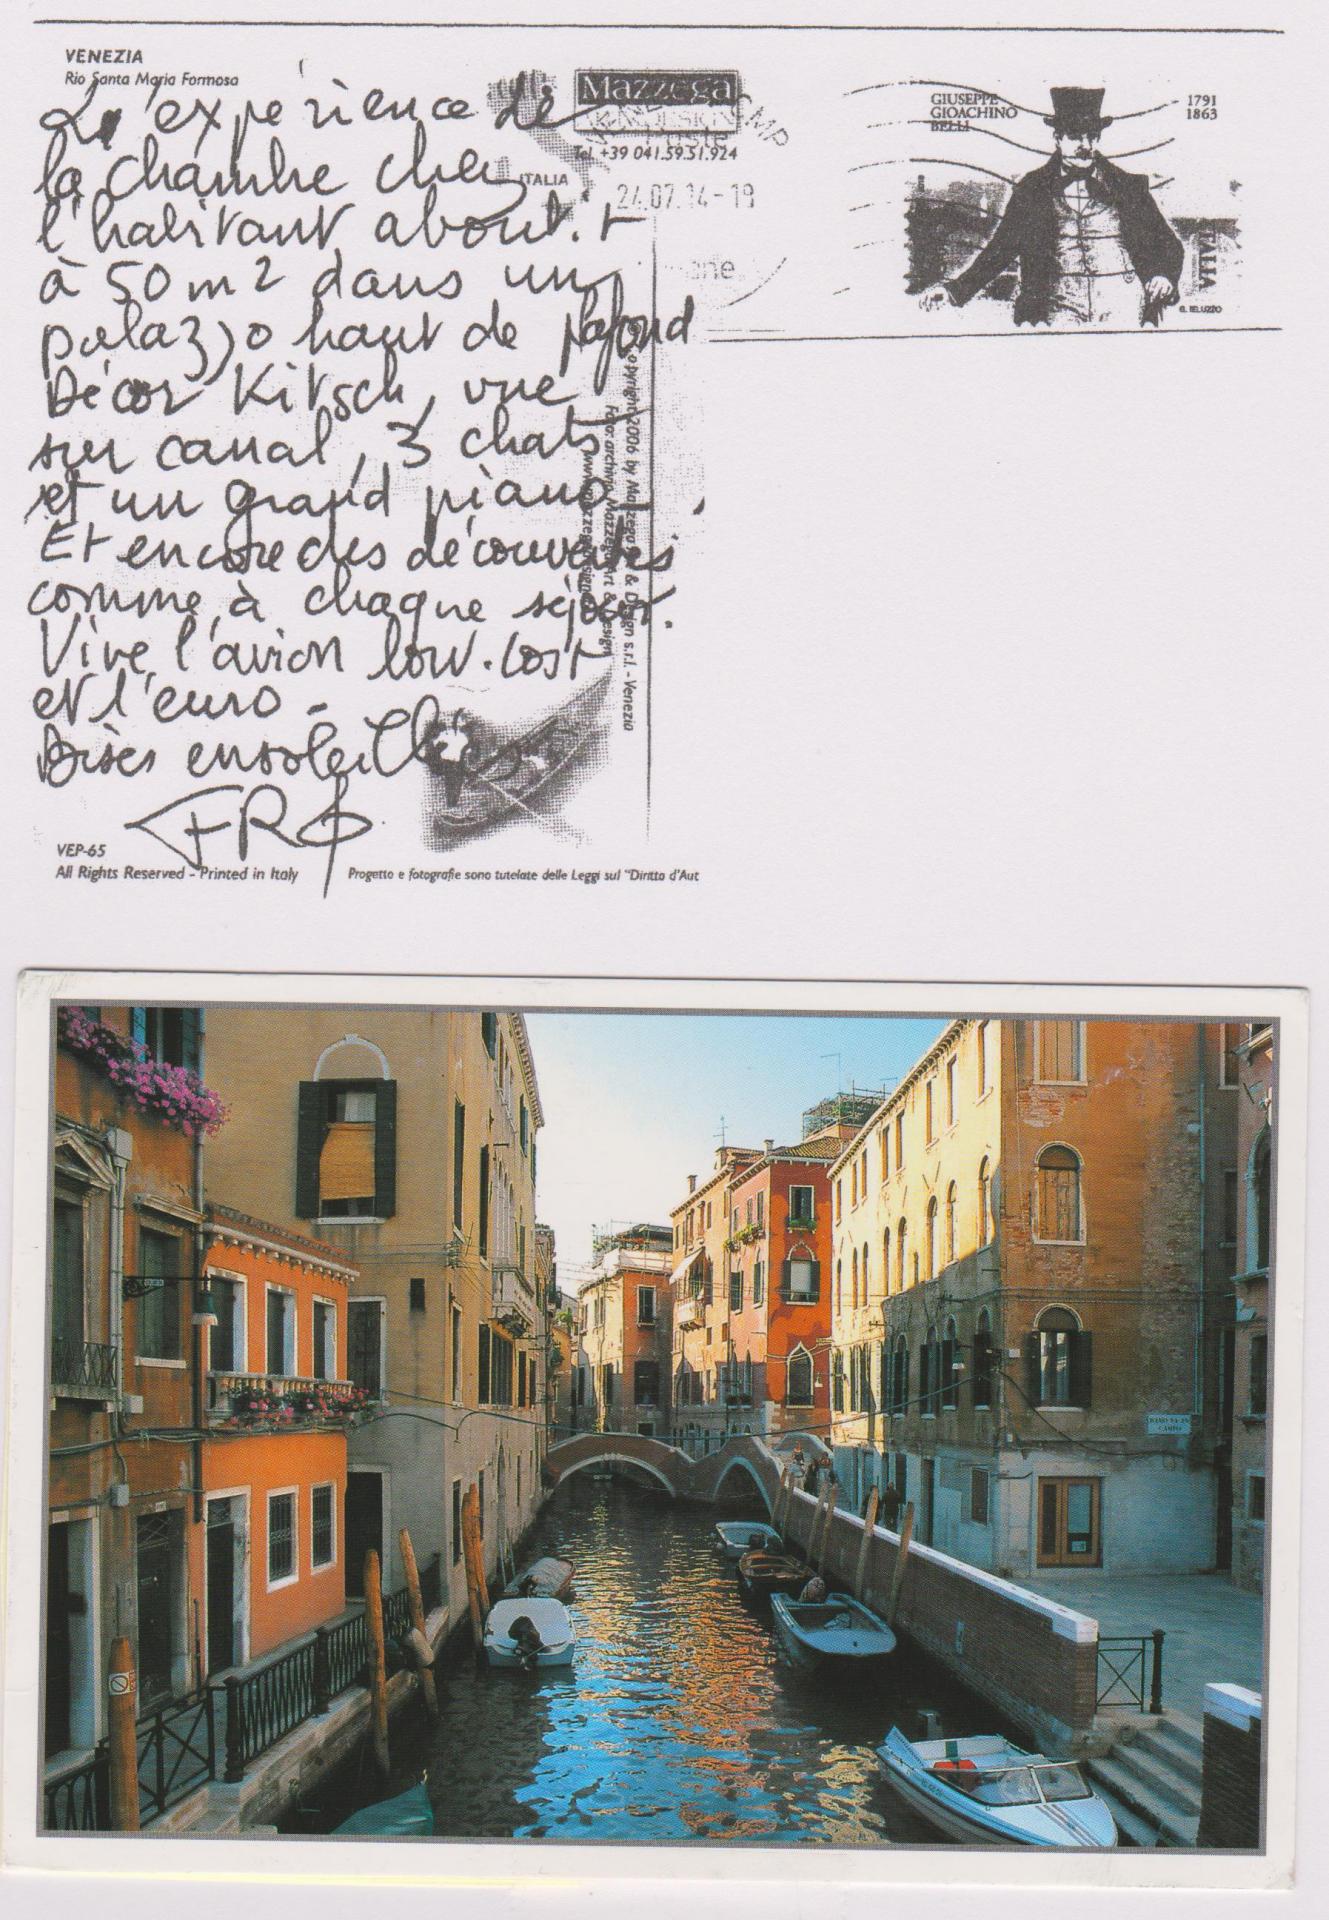 VENEZIA
Rio Santa Maria Formosa
Mazzega
Tel. +39 041.59.51.924
ITALIA
24.07.14-19
GIUSEPPE
GIOACHINO
BELLI
1791
1863
ITALIA
L'expérience de
la chambre chez
l'habitant about.t
à 50 m2 dans un
palazzo haut de plafond
Décor Kitsch, vue
sur canal, 3 chats
et un grand piano.
Et encore des découvertes
comme à chaque séjour.
Vive l'avion low.cost
et l'euro.
Bises ensoleillées
FRØ
Copyright 2006 by Mazzega Art & Design s.r.l. - Venezia
Foto: archivio Mazzega Art & Design
VEP-65
All Rights Reserved - Printed in Italy
Progetto e fotografie sono tutelate delle Leggi sul "Diritto d'Aut